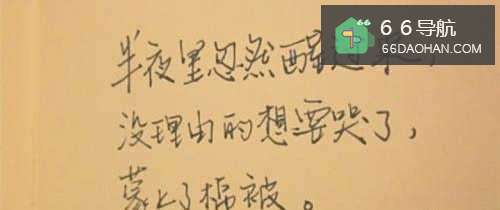 66导航
66DAOHAN.COM
半夜里忽然醒过来，
没理由的想要哭了，
蒙上了棉被。